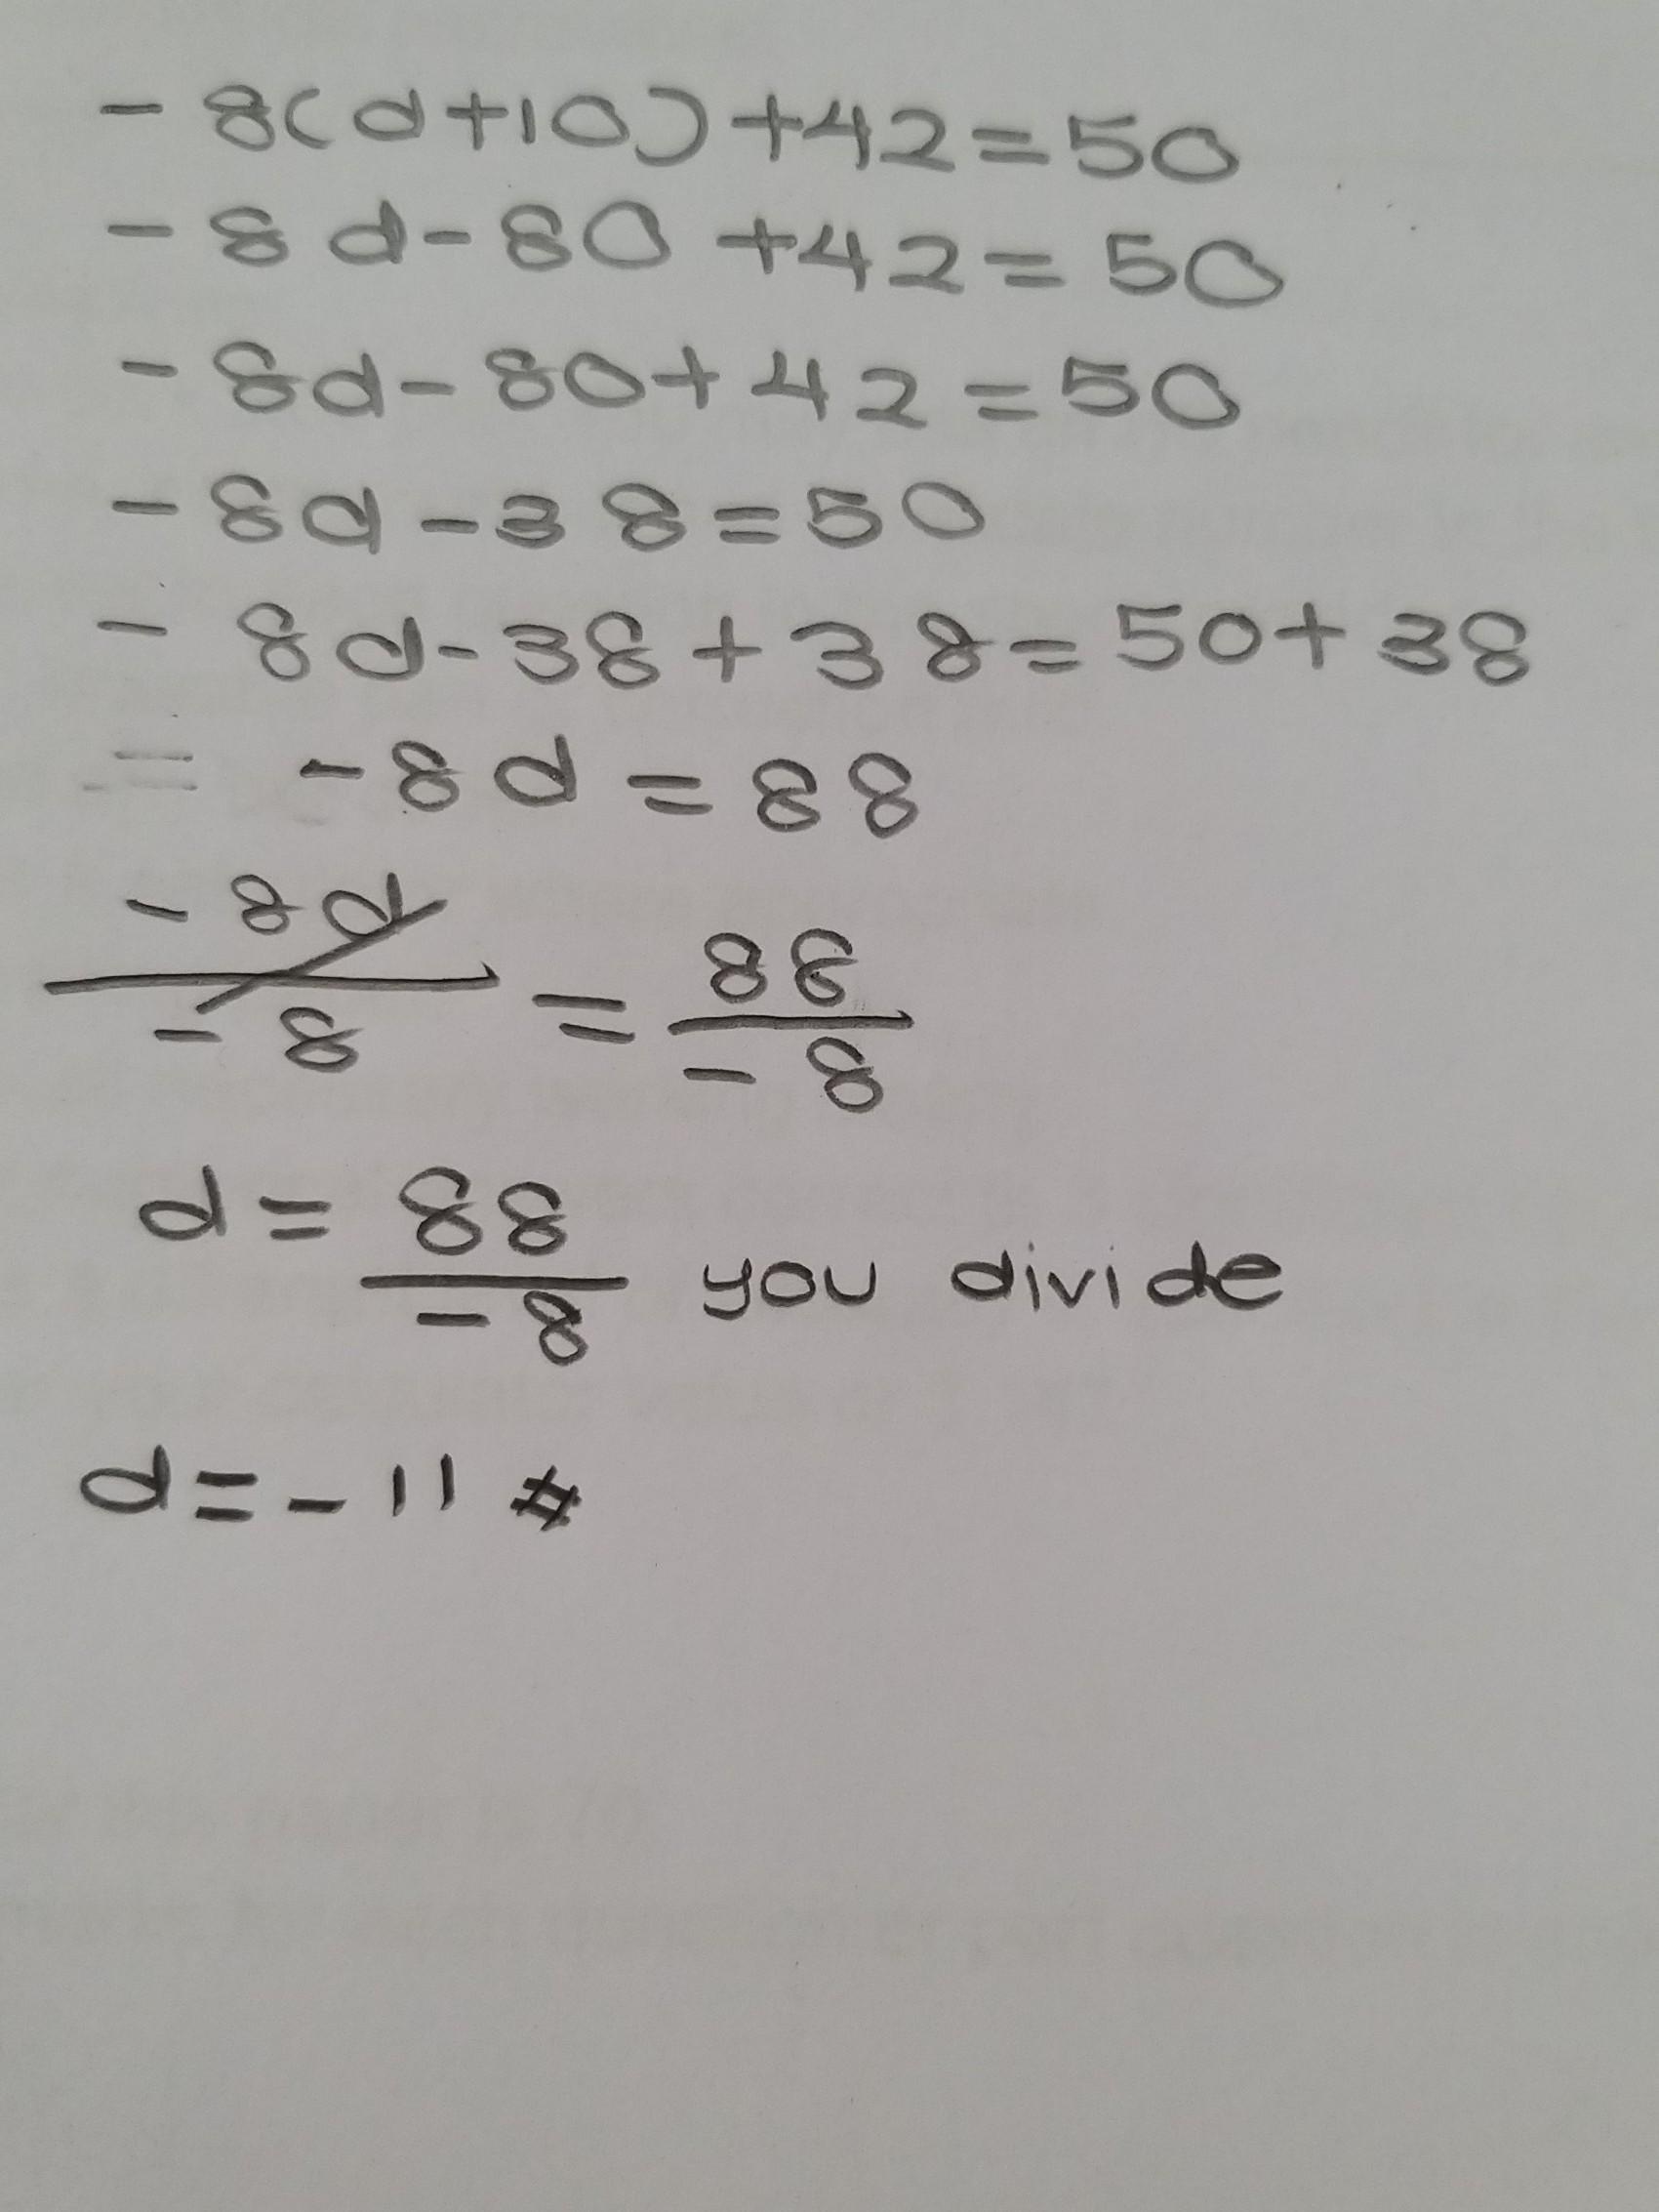 - 8(d+10)+42=50
- 8d-80+42=50
- 8d-80+42=50
- 8d-38=50
- 8d-38+38=50+38
= -8d=88
-8d/-8 = 88/-8
d=88/-8 you divide
d=-11 #